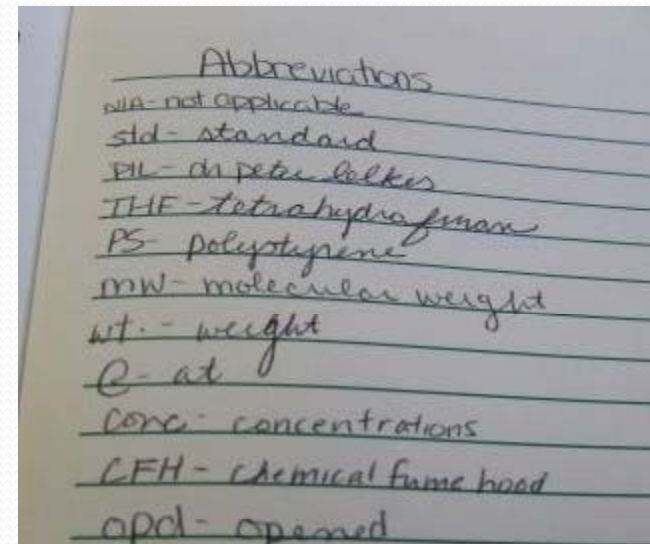 Abbreviations
N/A - not applicable
std - standard
PIL - dr peter lelkes
THF - tetrahydrofuran
PS - polystyrene
mw - molecular weight
wt. - weight
@ - at
conc - concentrations
CFH - chemical fume hood
opd - opened